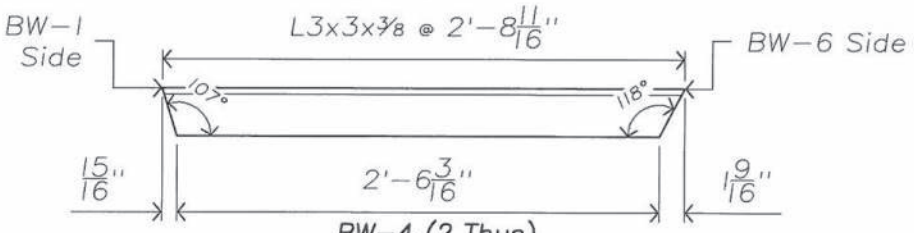 BW-1 Side
L3x3x3/8 @ 2'-8 11/16"
BW-6 Side
107°
118°
15/16"
2'-6 3/16"
1 9/16"
BW-4 (2 Thus)